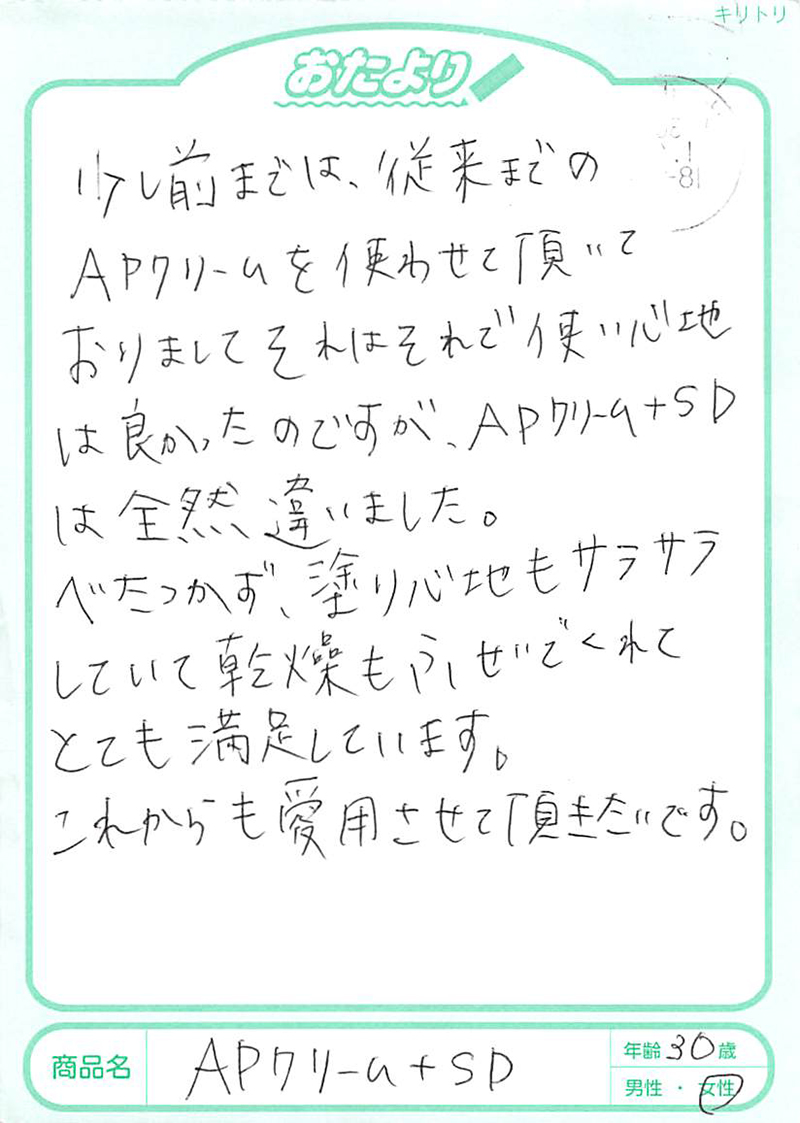 キリトリ
おたより
少し前までは、従来までの
APクリームを使わせて頂いて
おりましてそれはそれで使い心地
は良かったのですが、APクリーム+SD
は全然違いました。
べたつかず、塗り心地もサラサラ
していて乾燥もふせいでくれて
とても満足しています。
これからも愛用させて頂きたいです。
商品名 APクリーム+SD
年齢30歳
男性・女性